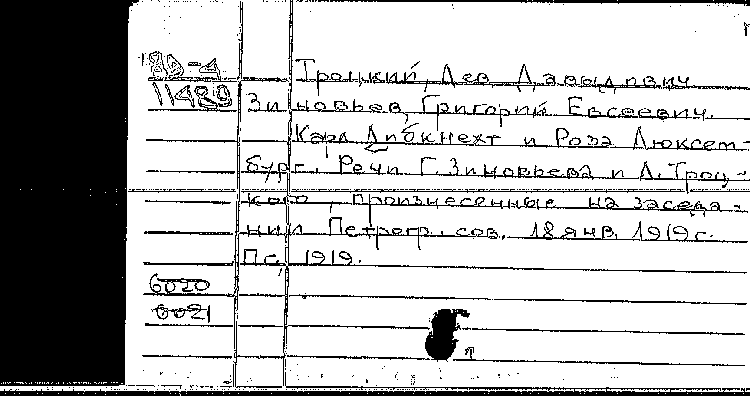 Троцкий, Лев Давидович
11489
Зиновьев, Григорий Евсеевич.
Карл Либкнехт и Роза Люксем-
бург. Речи Г. Зиновьева и Л. Троц-
кого, произнесенные на заседа-
нии Петрогр. сов. 18 янв. 1919 г.
Пг, 1919.
6020
6021